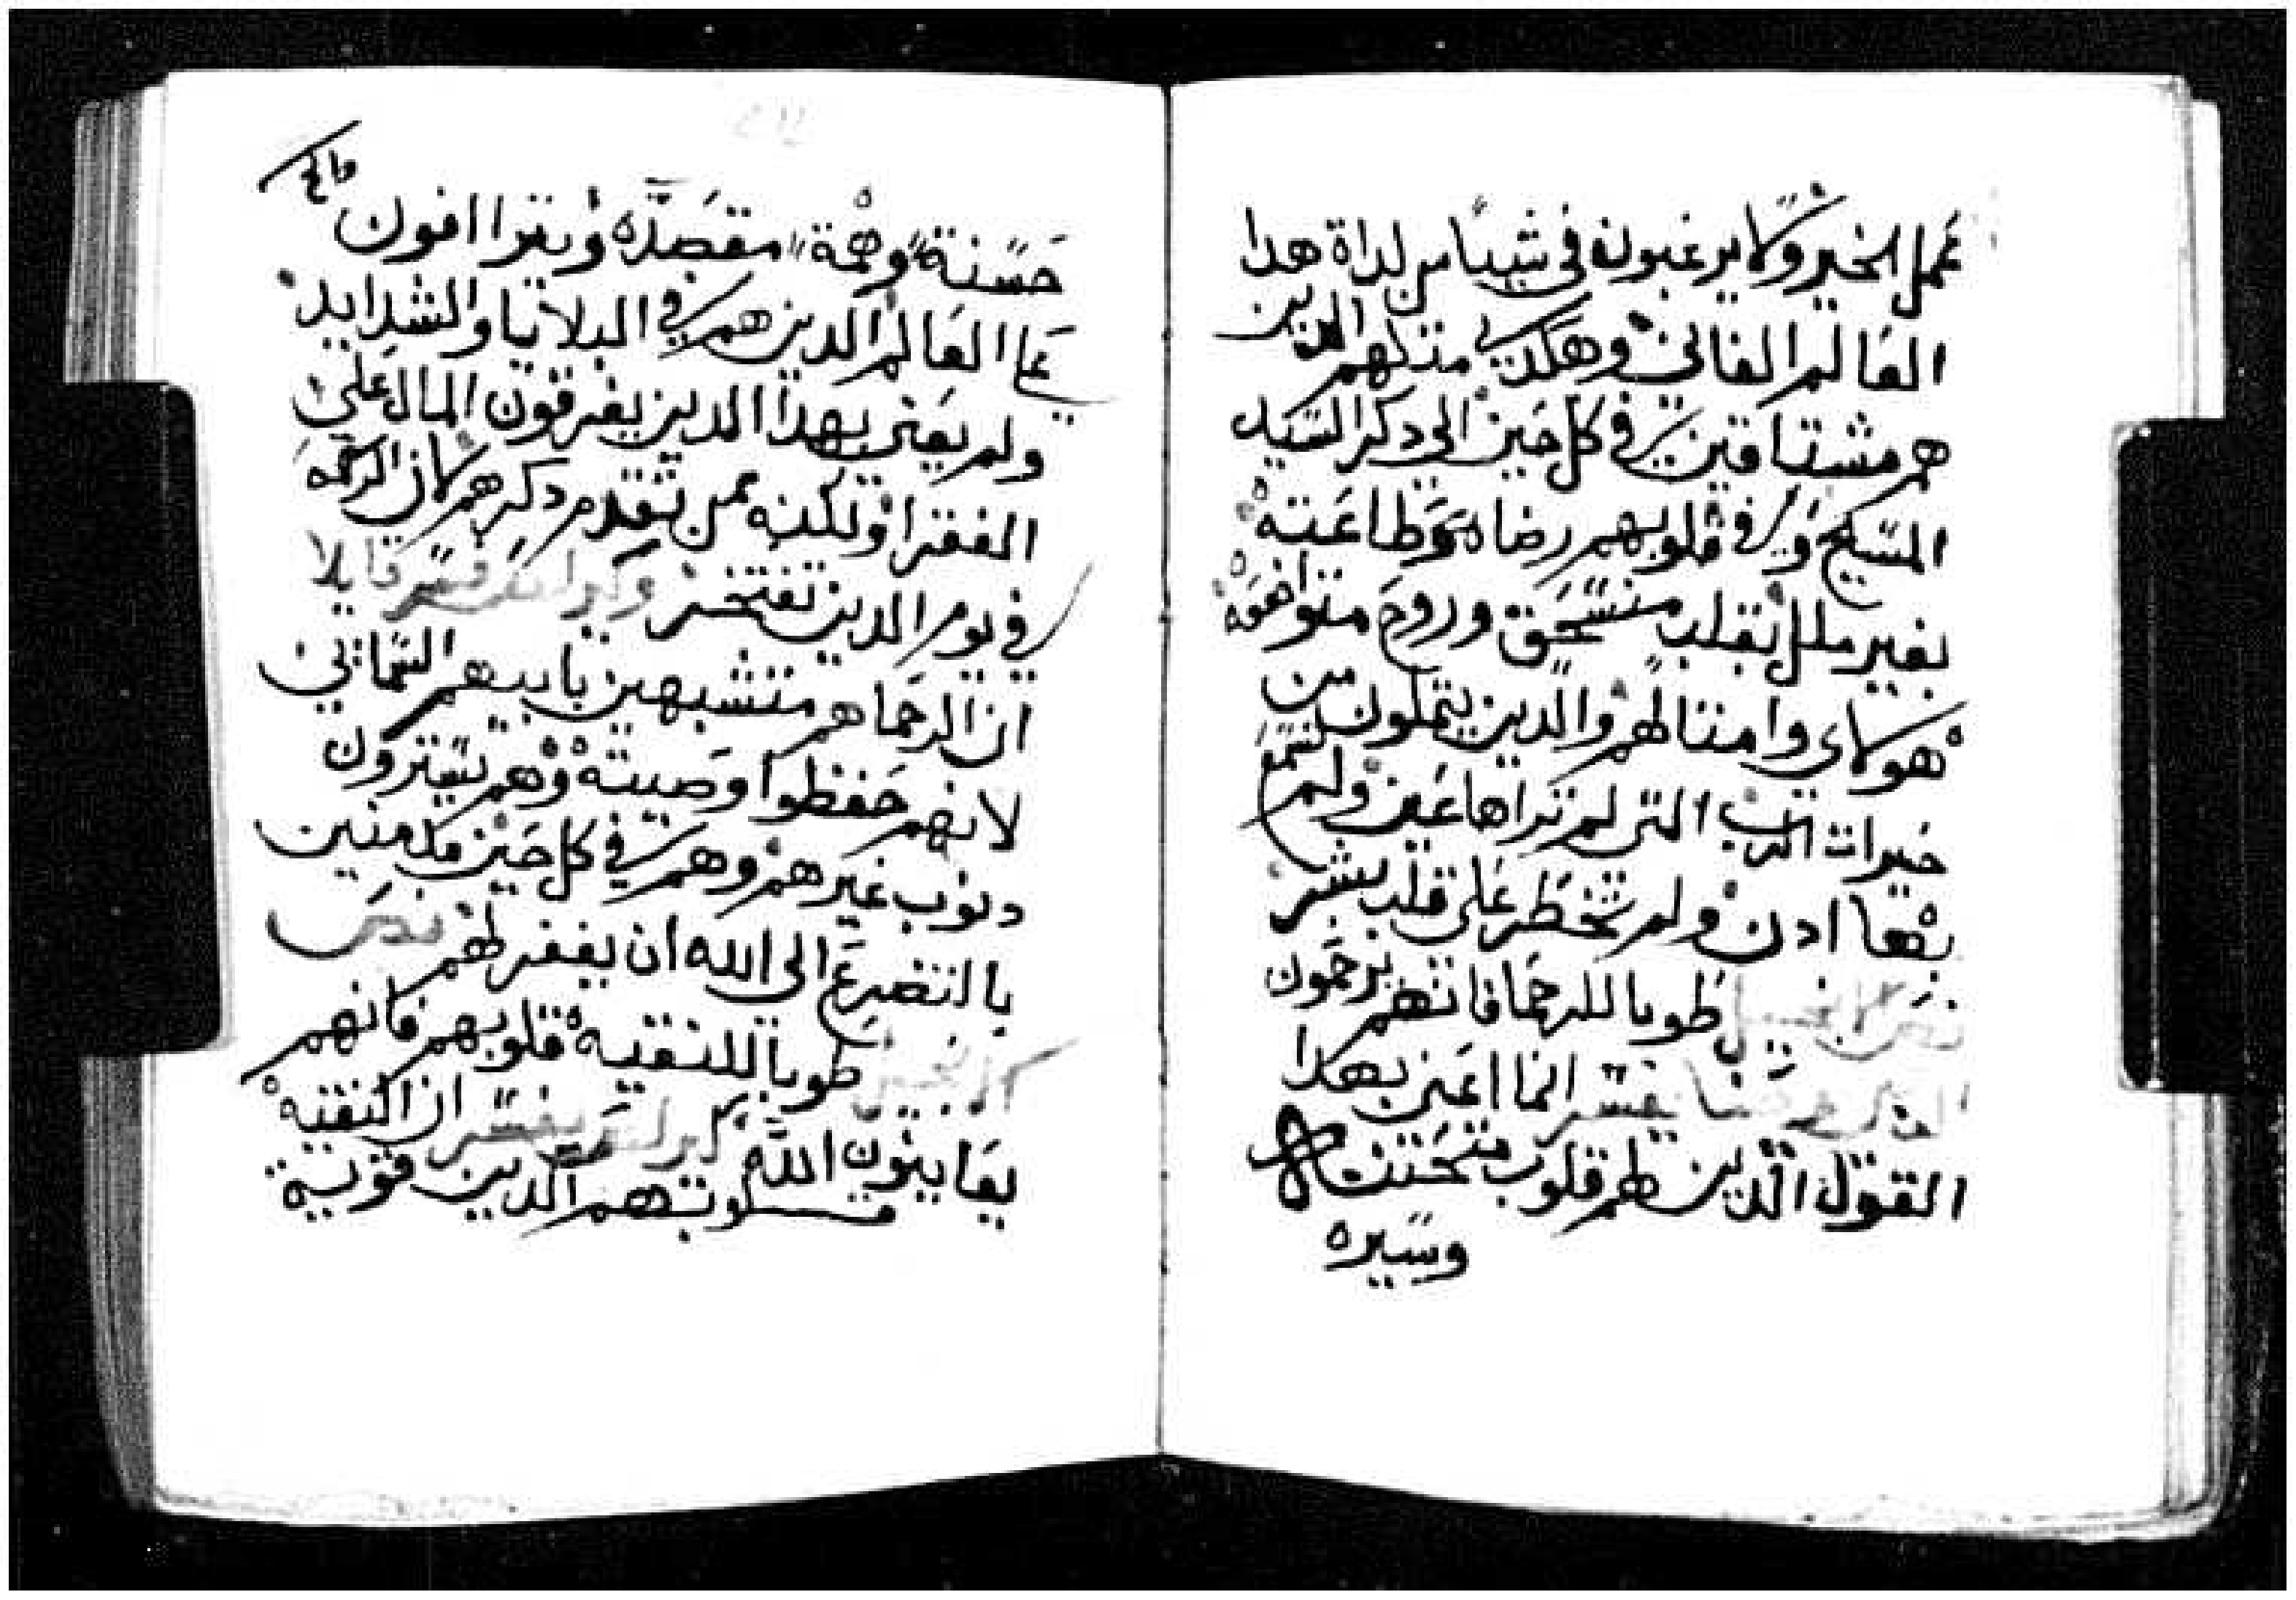 عمل الخير ولا يرغبون في شييا من لداة هدا
العالم الفاني وهكدي متلهم الدين
هم مشتاقين في كل حين الي دكر السيد
المسيح وفي قلوبهم رضاه وطاعته
بغير ملل بقلب منسحق وروح متواضعه
هولاي وامتالهم والدين يتملون من
خيرات الرب التي لم تراها عين ولم تسمع
بها ادن ولم تخطر علي قلب بشر
نص الانجيل طوبا للرحما فانهم يرحمون
يفسر انما اعني بهدا
القول الدين لهم قلوب متحننه
وسيره
حسنة وهمة مقصده ويتراافون
علي العالم الدين هم في البلايا والشدايد
ولم يعني بهدا الدين يفرقون المال علي
الفقرا ولكنه عمن تقدم دكرهم لان الرحمه
في يوم الدين تفتخر فسر قايلا
ان الرحما هم متشبهين بابيهم السماني
لانهم حفظوا وصيته وهم يسترون
دنوب غيرهم وهم في كل حين مدمنين
بالتضرع الي الله ان يغفر لهم نص
الانجيل طوبا للنقيه قلوبهم فانهم
يعاينون الله يفسر ان النقيه
قلوبهم الدين قوية